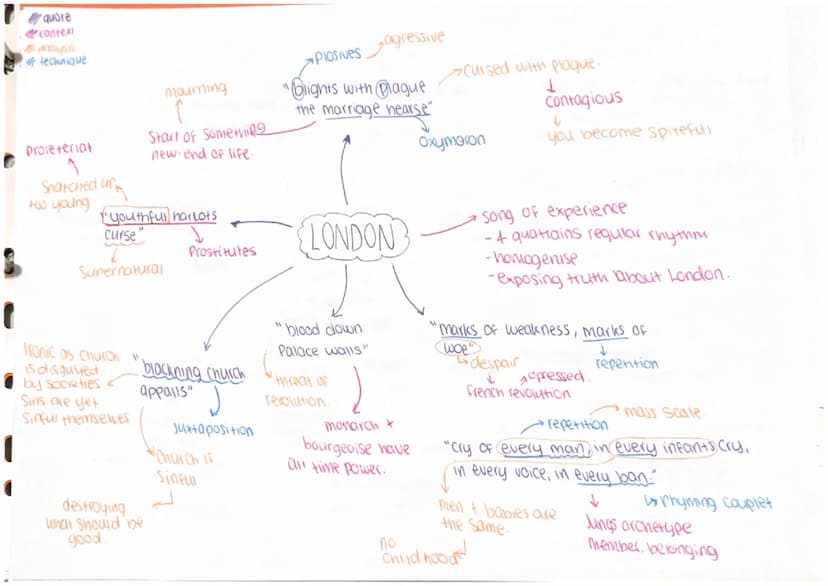 quote
context
analysis
technique
plosives
agressive
"blights with plague
the marriage hearse"
cursed with plague.
contagious
you become spiteful
oxymoron
mourning
Start of something
new. end of life.
proleteriat
Snatched up
too young
"youthful harlots
curse"
Supernatural
Prostitutes
LONDON
song of experience
- 4 quatrains regular rhythm
- homogenise
- exposing truth about London.
"blood down
Palace walls"
threat of
revolution.
monarch +
bourgeoise have
all time power.
"marks of weakness, marks of
woe"
despair
opressed.
french revolution
repetition
Ironic as church
is disgusted
by societies
Sins are yet
sinful themselves
"blackning church
appalls"
juxtaposition
Church is
sinful
destroying
what should be
good
repetition
mass scale
"cry of every man, in every infants cry,
in every voice, in every ban."
men + babies are
the same.
no
childhood
Rhyming couplet
Jungs archetype
member. belonging